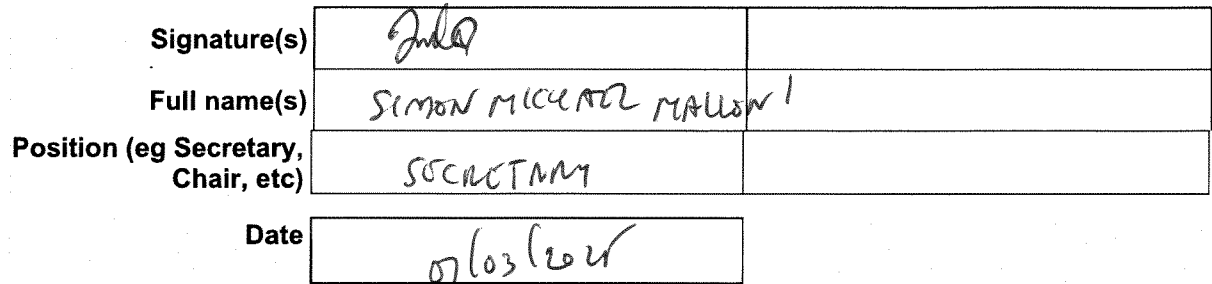 Signature(s)
Full name(s) SIMON MICHAEL MALLON
Position (eg Secretary,
Chair, etc) SECRETARY
Date 07/03/2025